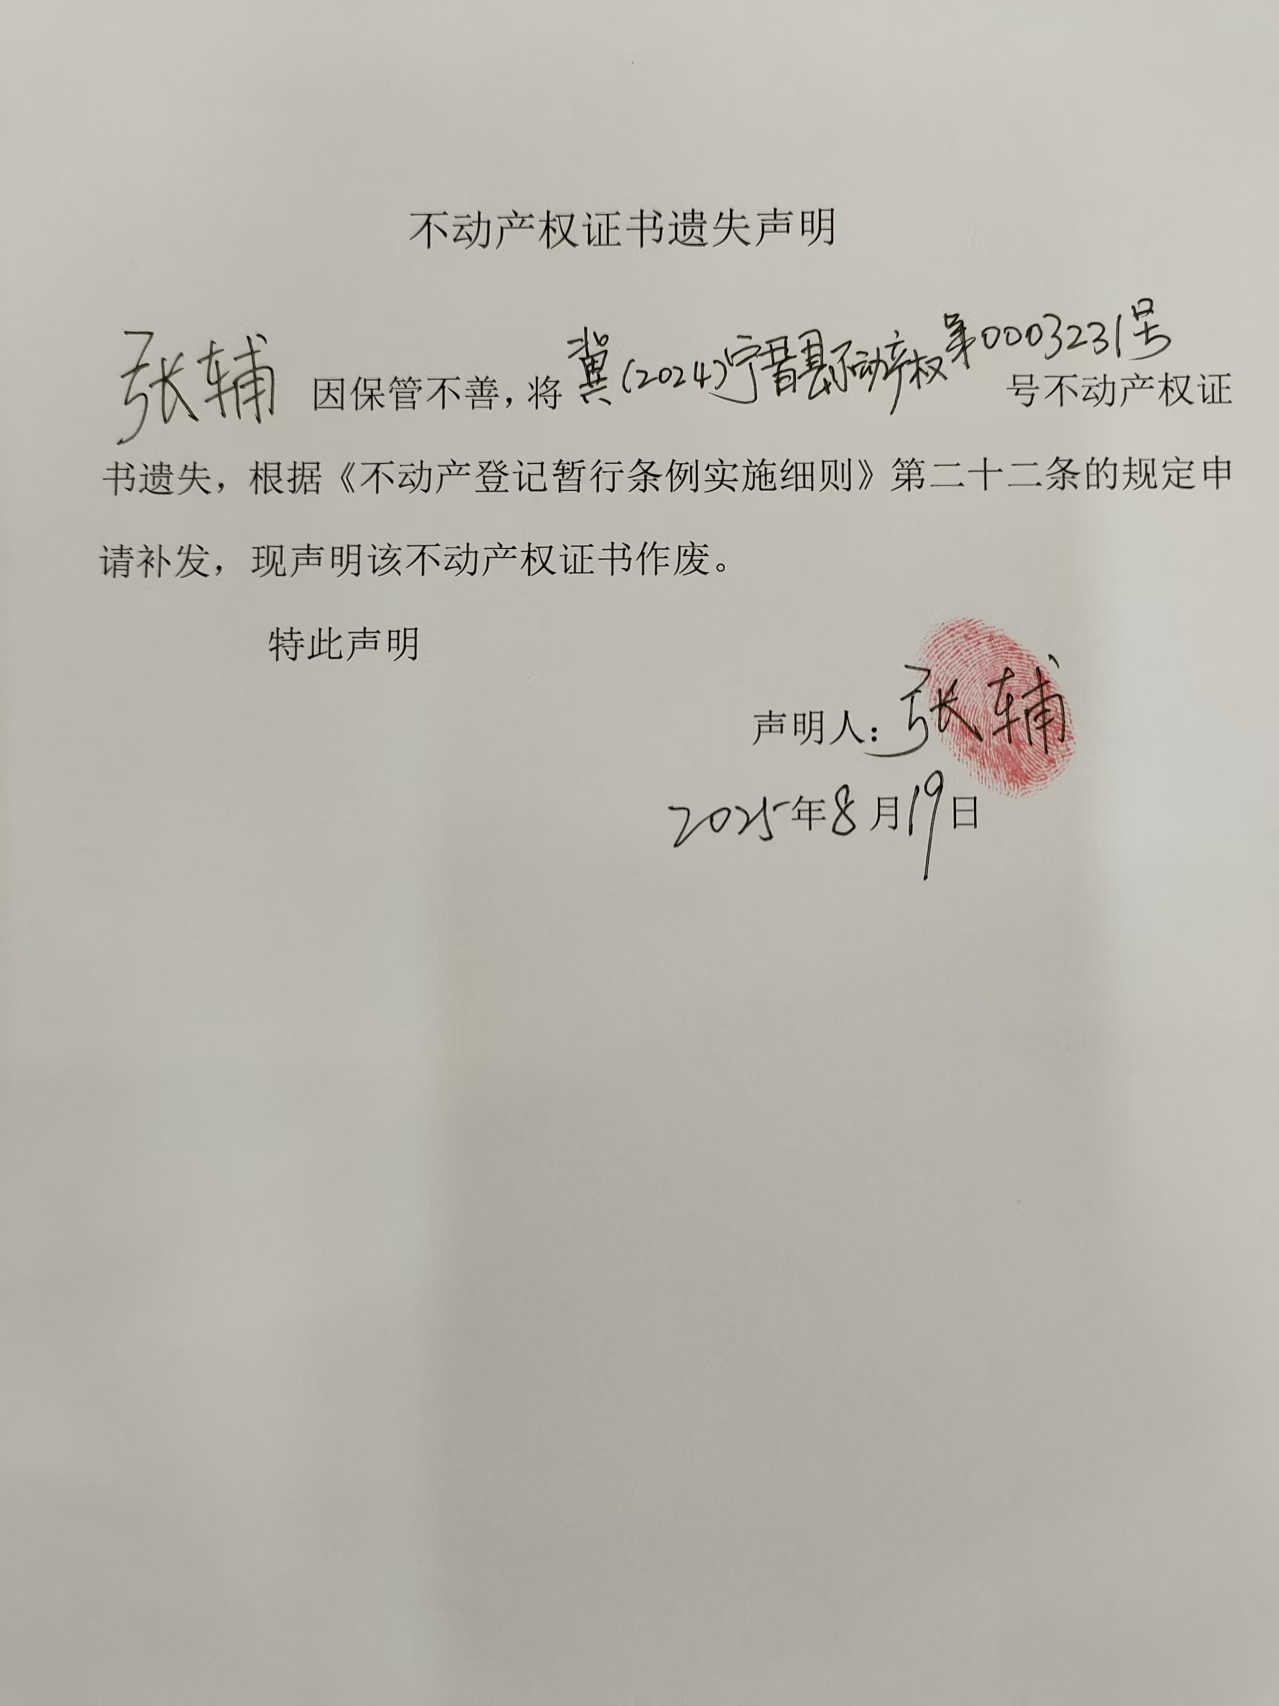 不动产权证书遗失声明
张辅 因保管不善，将 冀(2024)宁晋县不动产权第0003231号 号不动产权证
书遗失，根据《不动产登记暂行条例实施细则》第二十二条的规定申
请补发，现声明该不动产权证书作废。
特此声明
声明人：张辅
2025年8月19日